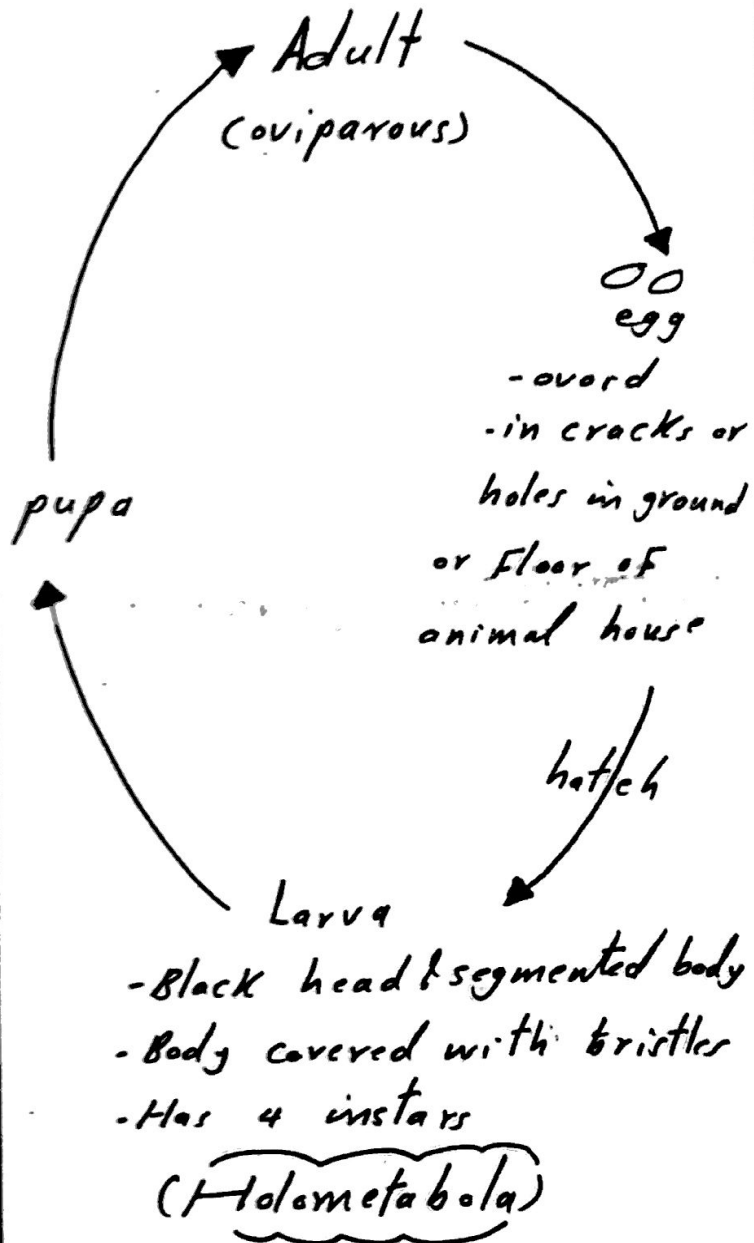 Adult
(oviparous)
egg
-ovord
-in cracks or
holes in ground
or Floor of
animal house
hatch
Larva
-Black head & segmented body
-Body covered with bristles
-Has 4 instars
(Holometabola)
pupa